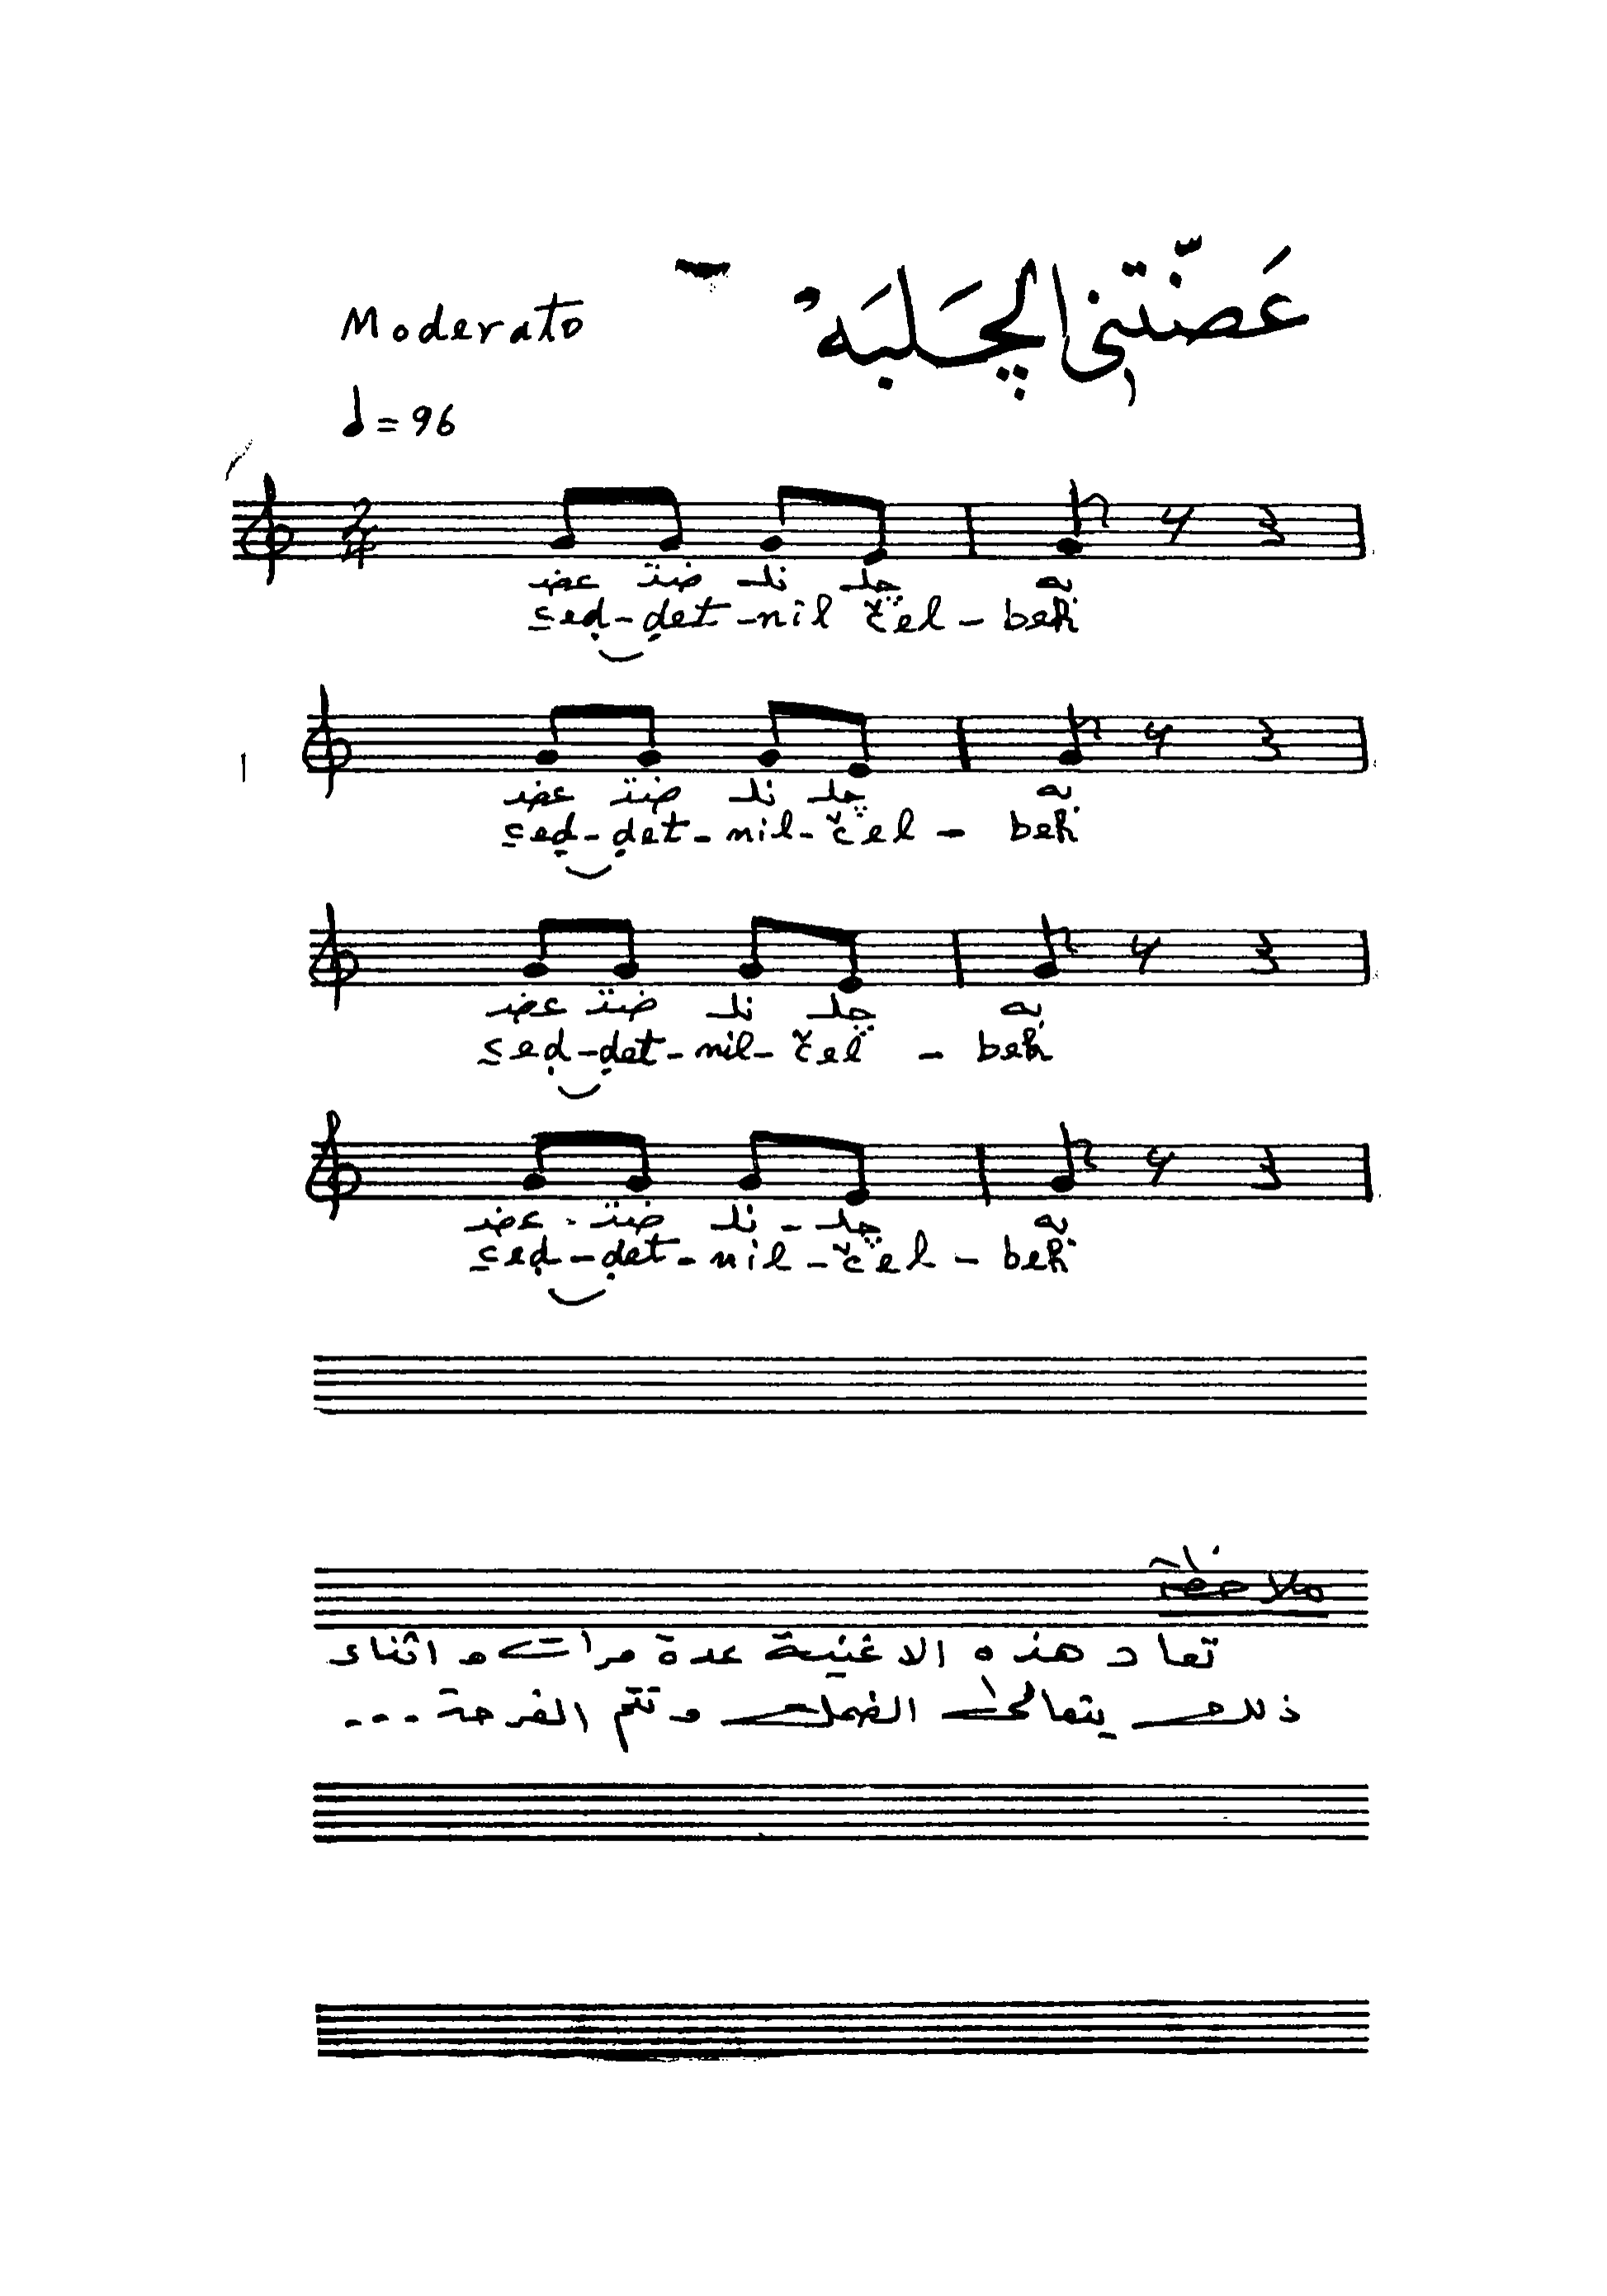 عَضّتني الچَلبَهْ
Moderato
♩ = 96
2/4
عضـ ضتـ نلـ چلـ به
ceḍ-ḍet-nil čel-beh
عضـ ضتـ نلـ چلـ به
ceḍ-ḍet-nil-čel-beh
عضـ ضتـ نلـ چلـ به
ceḍ-ḍet-nil-čel-beh
عضـ - ضتـ نلـ - چلـ به
ceḍ-ḍet-nil-čel-beh
ملاحظة
تعاد هذه الاغنية عدة مرات و اثناء
ذلك يتعالى الضحك و تتم الفرحة ...